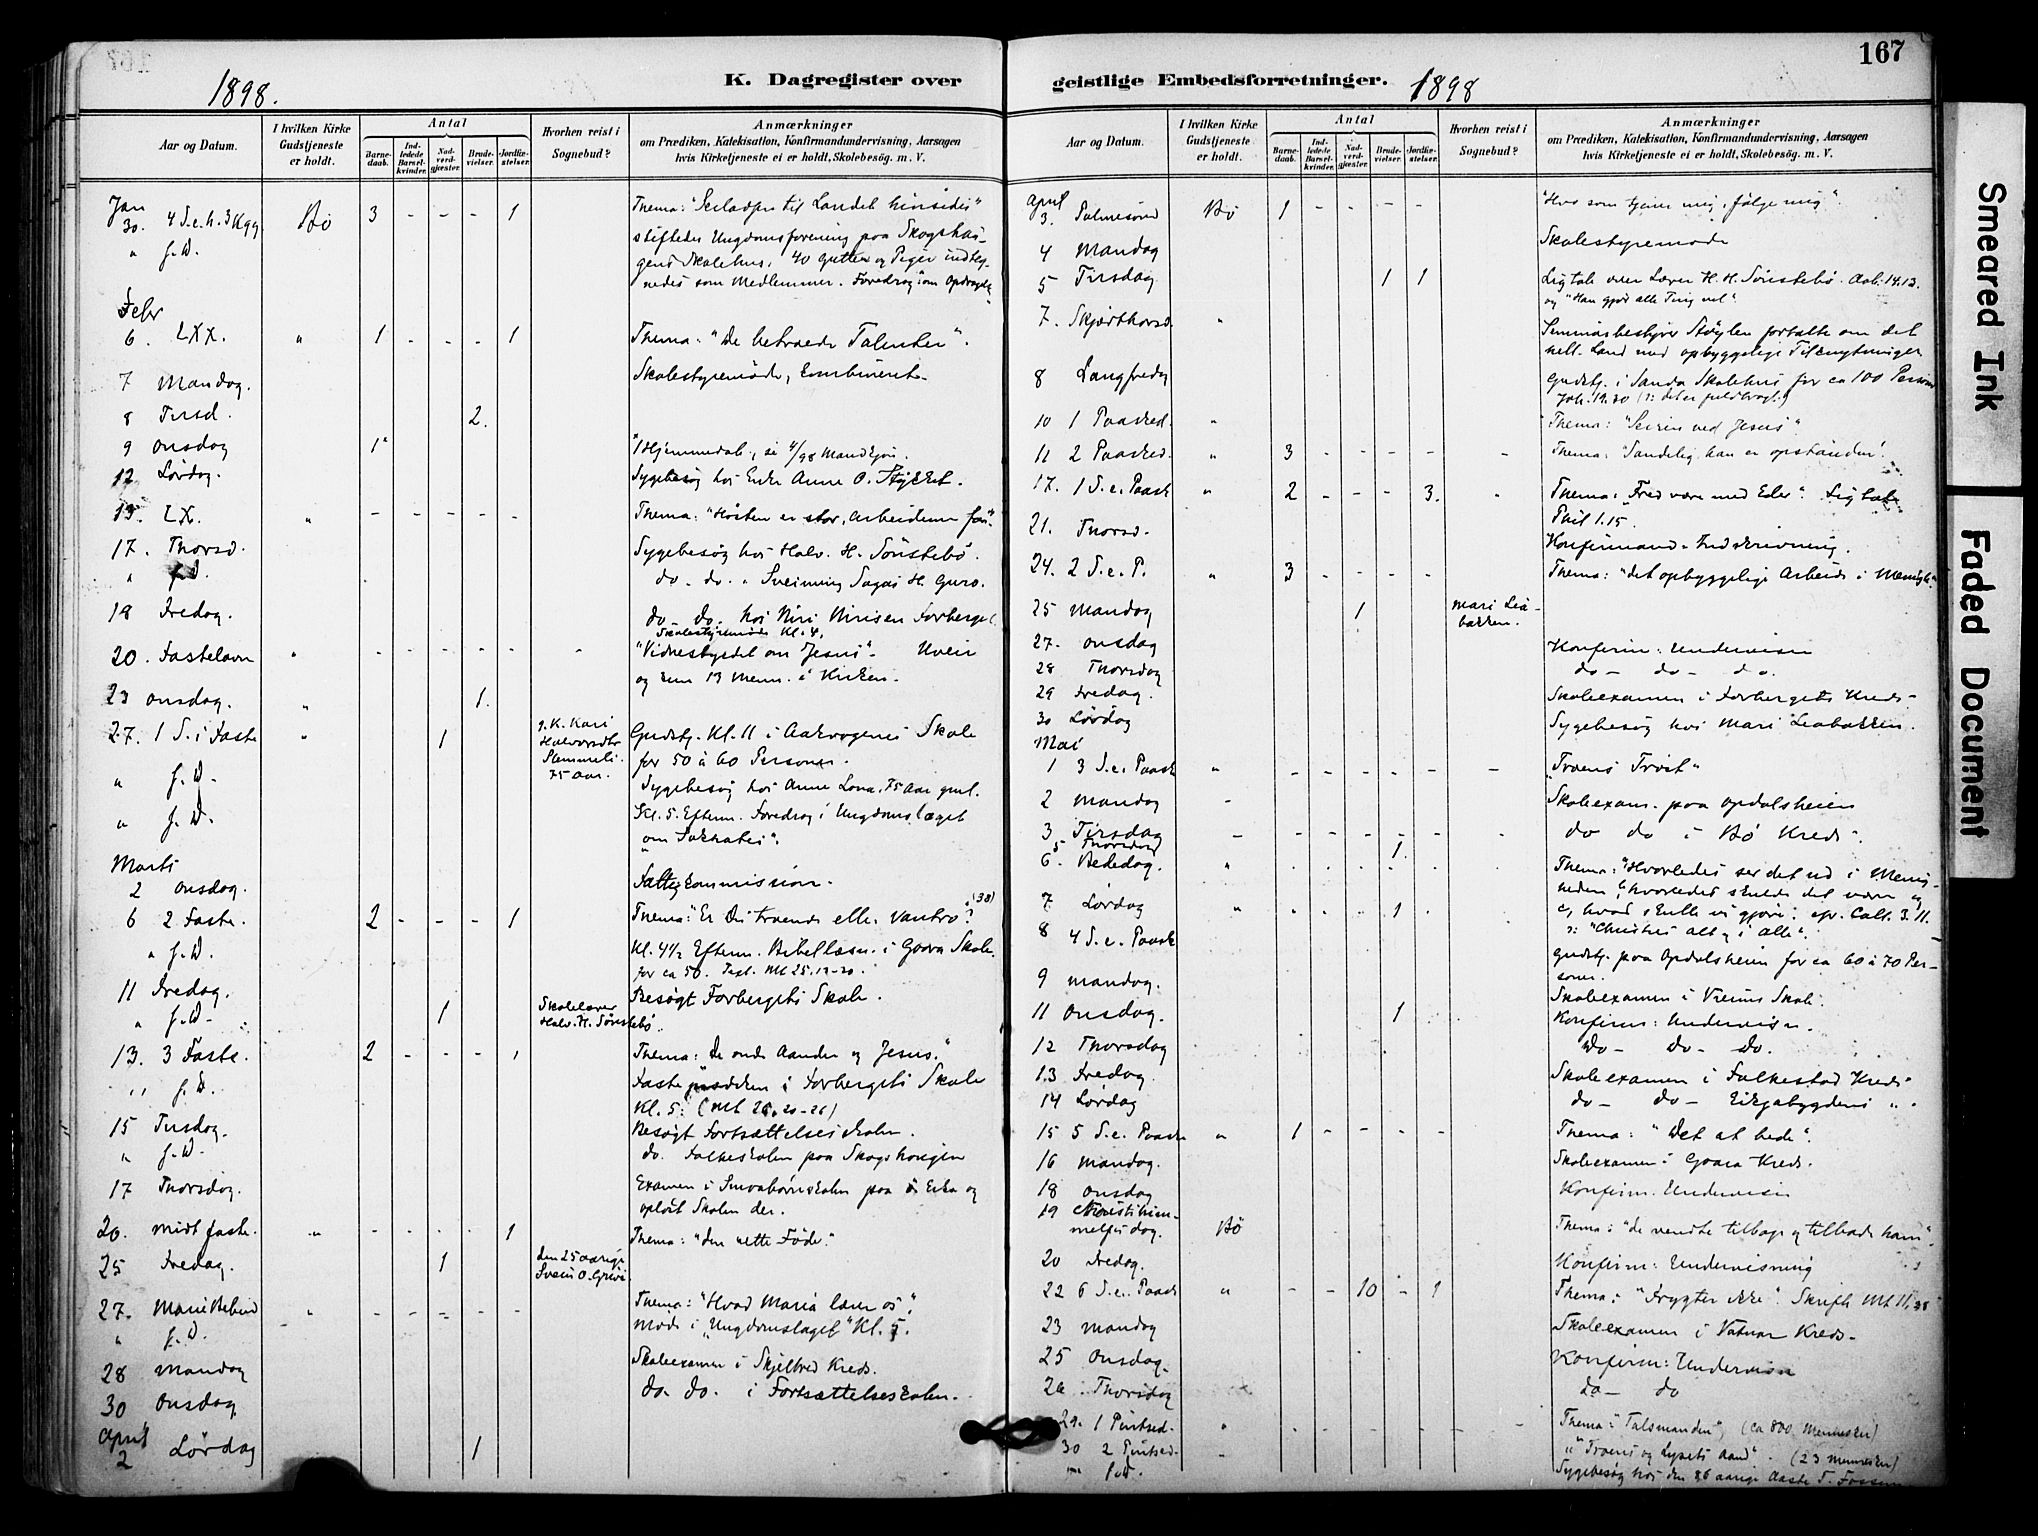 167
1898.
K. Dagregister over
geistlige Embedsforretninger.
1898
Aar og Datum.
I hvilken Kirke Gudstjeneste er holdt.
Antal
Barnedaab.
Indledede Barselkvinder.
Nadverdgjæster.
Brudevielser.
Jordfæstelser.
Hvorhen reist i Sognebud?
Anmærkninger
om Prædiken, Katekisation, Konfirmandundervisning, Aarsagen
hvis Kirketjeneste ei er holdt, Skolebesög. m. V.
Jan
30. 4 S. e. h. 3 Kgg. Bø 3 - - - 1 Thema: "Seiladsen til Landet hinsides"
" s. D. stiftedes Ungdomsforening paa
40 Gutter og Piger
som Medlemmer. Foredrag om
Febr
6. LXX. " 1 - - - 1 Thema: "De betroede Talenter".
7 Mandag. Skolestyremøde, kombineret
8 Tirsd. 2.
9 Onsdag 1
12 Lørdag. Sygebesøg hos Enke Anne O.
13. LX. " - - - - - Thema: "Høsten er stor, Arbeiderne faa".
17. Thorsd. Sygebesøg hos Halv. H. Sønstebø.
" s. D. do. do.
18 Fredag. do. do. hos
Skolestyremøde Kl. 4.
20. Fastelavn " - - - - - "Vidnesbyrdet om Jesus". Uveir
og kun 13 Menn. i Kirken.
23 Onsdag. " 1.
27. 1 S. i Faste " 1 Kari Halvorsdtr. 75 Aar. Gudstj. Kl. 11 i Skole
for 50 à 60 Personer.
" s. D. Sygebesøg hos Anne Lona, 75 Aar gml.
" s. D. Kl. 5. Efterm. Foredrag i Ungdomslaget
om "Sokrates".
Marts
2 Onsdag. Fattigkommission.
6 2 Faste. 2 - - - 1 Thema: "Er Du troende eller vantro"?
" s. D. Kl. 4½ Efterm. Bibellæsn. i Gaara Skole
for ca 50. Text. Mt 25.
11 Fredag. Besøgt Forbergets Skole.
" s. D. 1 Skolelærer Halv. H. Sønstebø
13. 3 Faste. 2 - - - Thema: De onde Aander og Jesus."
" s. D. Faste i Forbergets Skole
Kl. 5:
15 Tirsdag. Besøgt Fortsættelsesskolen.
" s. D. do. Folkeskolen paa
17 Thorsdag. Examen i Smaabørnsskolen paa Eika og
opløst Skolen der.
20. Midtfaste. " 1 Thema: "den rette Føde."
25 Fredag. 1 den 25 aarige
27. Mariæ Bebud " - - - - Thema: "Hvad Maria lærer os".
" s. D. Møde i "Ungdomslaget" Kl. 5.
28 Mandag Skoleexamen i Skjelbred Kreds.
30 Onsdag do. do. i Fortsættelsesskolen.
April
2 Lørdag 1
Aar og Datum.
I hvilken Kirke Gudstjeneste er holdt.
Antal
Barnedaab.
Indledede Barselkvinder.
Nadverdgjæster.
Brudevielser.
Jordfæstelser.
Hvorhen reist i Sognebud?
Anmærkninger
om Prædiken, Katekisation, Konfirmandundervisning, Aarsagen
hvis Kirketjeneste ei er holdt, Skolebesög. m. V.
April
3. Palmesønd Bø 1 - - - - "Hvo som tjener mig, følge mig".
4 Mandag Skolestyremøde
5 Tirsdag 1 1 Ligtale over Lærer H. H. Sønstebø.
og "Han gjør alle Ting vel".
7. Skjærthorsd. " Seminarbestyrer fortalte om det
hell. Land med opbyggelige
8 Langfredag Gudstj. i Sanda Skolehus for ca 100 Personer
Joh. 19.30 (: det er fuldbragt.)
10 1 Paasked. " Thema: "Seiren ved Jesus".
11 2 Paasked. " 3 - - - - Thema: "Sandelig han er opstanden!
17. 1 S. e. Paask " 2 - - - 3. Thema: "Fred være med Eder". Ligtale
Phil 1.15.
21. Thorsd. Konfirmand-Indskrivning.
24. 2 S. e. P. " 3 - - - - Thema: "det opbyggelige Arbeide i Menigh."
25 Mandag 1 Mari Liabakken.
27. Onsdag Konfirm: Undervisn
28 Thorsdag do - do - do.
29 Fredag. Skoleexamen i Forbergets Kreds.
30 Lørdag Sygebesøg hos Mari Liabakken.
Mai
1 3 S. e. Paask " - - - - - "Troens Trøst"
2 Mandag - Skoleexam. paa Opdalsheien
3 Tirsdag - - - - - - do do i Bø Kreds.
5 Thorsdag 1.
6. Bededag. " Thema: "Hvorledes ser det ud i Menigheden, hvorledes skulde det være og
hvad skulle vi gjøre:
: "Christus alt og i alle".
7 Lørdag " 1
8 4 S. e. Paask Gudstj. paa Opdalsheien for ca 60 à 70 Personer.
9 Mandag. Skoleexamen i Skole.
11 Onsdag. 1 Konfirm: Undervisn.
12 Thorsdag Do - Do - Do.
13. Fredag. Skoleexamen i Folkestad Kreds
14 Lørdag do - do - Eikjabygdens " .
15 5 S. e. Paask " 1 - - - - Thema: "Det at bede".
16 Mandag. Skoleexamen i Gaara Kreds.
18 Onsdag Konfirm. Undervisn
19 Christi himmelfsdag. Bø Thema: "de vendte tilbage og tilbade ham".
20 Fredag. Konfirm: Undervisning
22 6 S. e. Paask " - - 10 - 1 Thema: "Frygter ikke". Skrift. Mt 11,28
23 Mandag Skoleexamen i Vatnar Kreds.
25 Onsdag. Konfirm: Undervisn
26 Thorsdag do - do
29. 1 Pintsed. " Thema: "Talsmanden", (ca 800 Mennesker)
30 2 Pintsed. - " "Troens og Lysets Aand". (23 Mennesker)
" s. D. Sygebesøg hos den 86 aarige Aaste T.
Smeared Ink
Faded Document